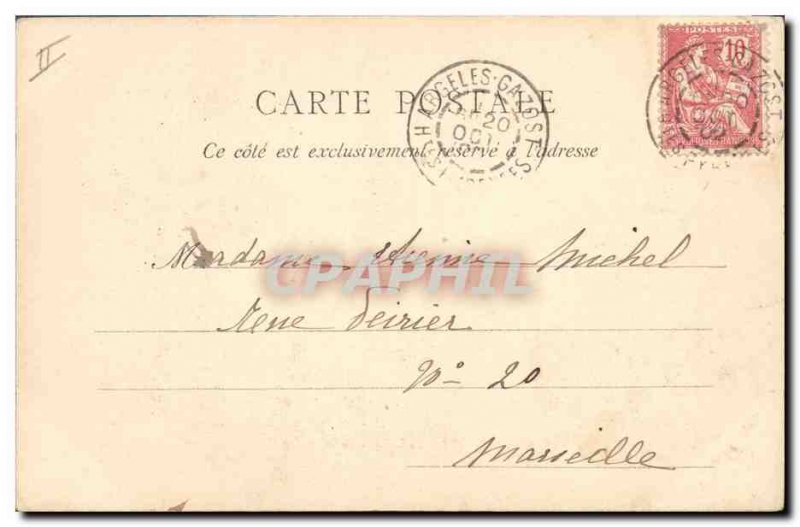 II
POSTES
10
CARTE POSTALE
ARGELES-GAZOST
20
OCT
Ce côté est exclusivement réservé à l'adresse
ARGELES-GAZOST
OCT
02
Madame Michel
CPAPHIL
No 20
Marseille